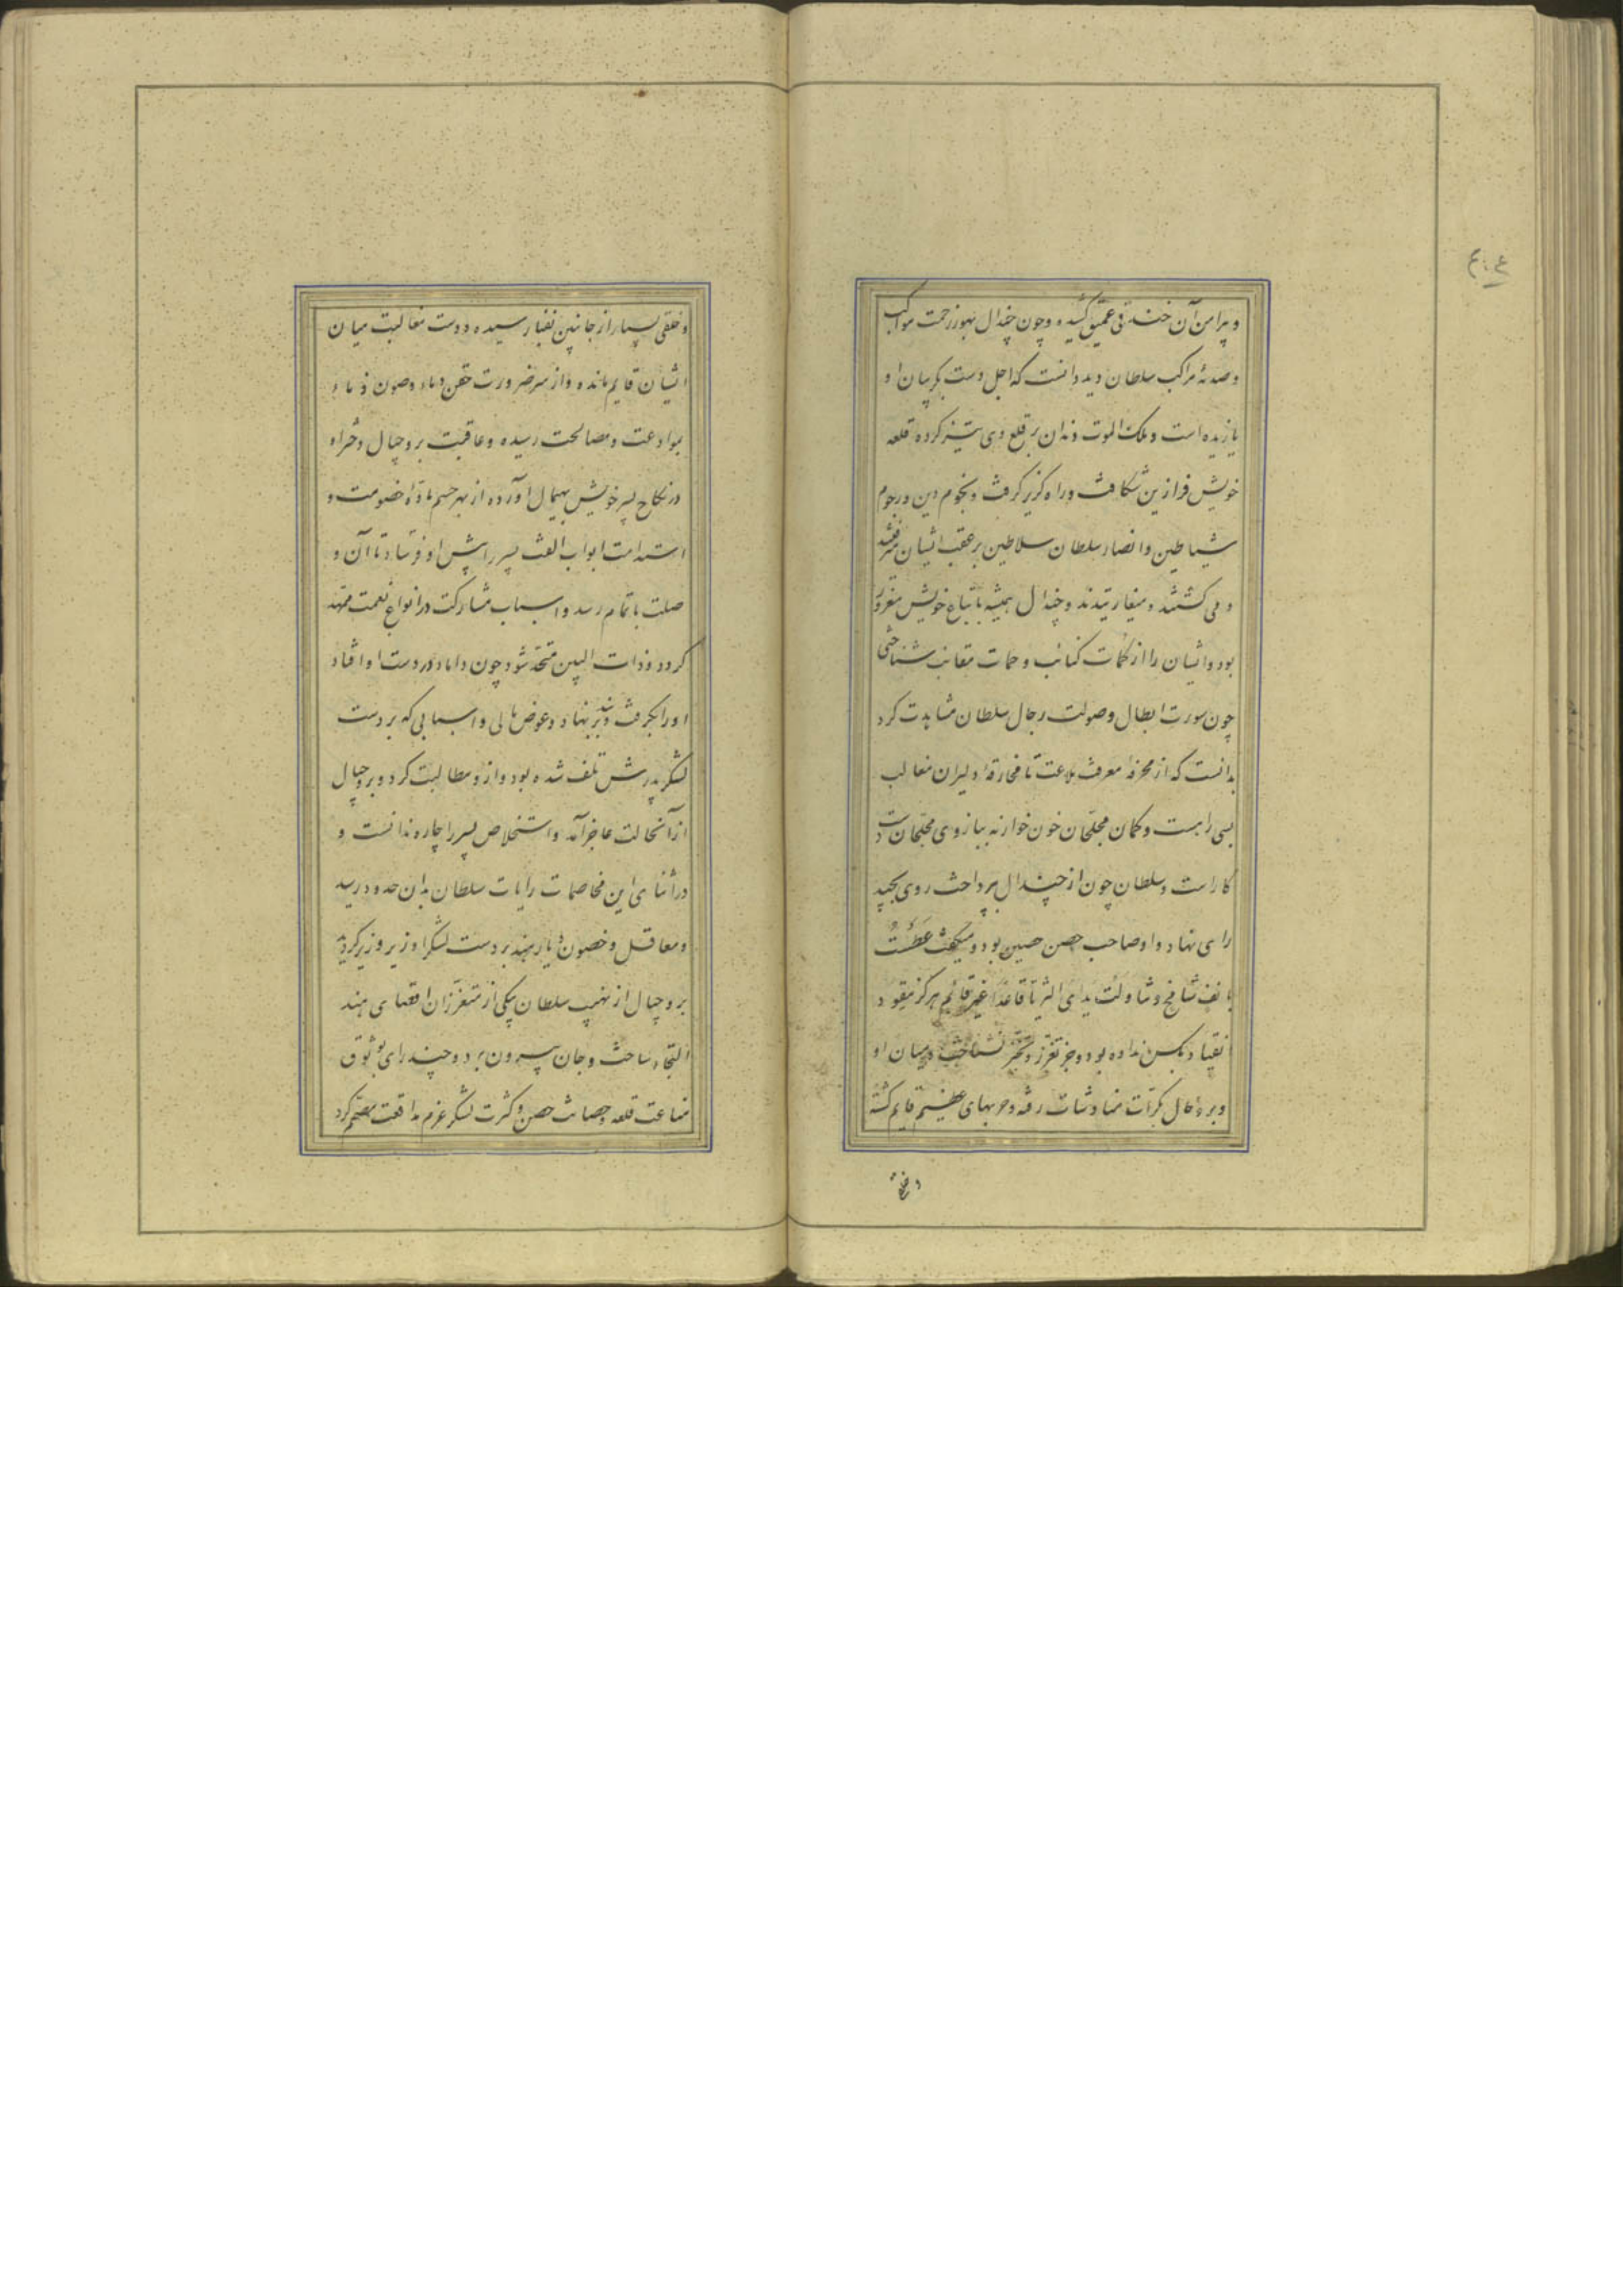 و پیرامن آن خندقی عمیق کشیده و چون چندال بهور زحمت مواکب
و صدمهٔ مراکب سلطان دید دانست که اجل دست بگریبان او
یازیده است و ملک الموت دندان بر قلع وی تیز کرده قلعه
خویش فراز بن شکافت و راه گریز گرفت و نجوم دین و رجوم
شیاطین و انصار سلطان سلاطین بر عقب ایشان میرفتند
و می کشتند و میغارتیدند و چندال همیشه باتباع خویش مغرور
بود و ایشان را از کمات کتائب و حمات مقانب شناختی
چون سورت ابطال و صولت رجال سلطان مشاهدت کرد
بدانست که از مخرفه معرفت بلاعت تا مخارقه دلیران مغالب
بسی راهست و کمان محلجان خون خوار نه ببازوی محلجان
کار است و سلطان چون از چندال بپرداخت روی بچند
رای نهاد و او صاحب حصن حصین بود و میگفت عَطَسْتُ
بانف شامخ و تناولت یدای الثریا قاعدا غیر قائم هرگز مقود
انقیاد بکس نداده بود و جز تعزز و تجبر نشناخته و میان او
و بروجیال بکرات مناوشات رفته و حربهای عظیم قایم گشته
و خلقی
و خلقی بسیار از جانبین بفنا رسیده و دست مغالبت میان
ایشان قایم مانده و از سر ضرورت حقن دماء و صون ذماء
بموادعت و مصالحت رسیده و عاقبت بروجیال دختر او
در نکاح پسر خویش بهیمال آورده از بهر حسم ماده خصومت و
استدامت ابواب الفت پسر را پیش او فرستاد تا آن و
صلت باتمام رسد و اسباب مشارکت در انواع نعمت ممهد
گردد و ذات البین متحد شود چون داماد در دست او افتاد
او را بگرفت و بند بر نهاد و عوض مالی و اسبابی که بر دست
لشکر پدرش تلف شده بود و ازو مطالبت کرد و بروجیال
از آنحالت عاجز آمد و استخلاص پسر را چاره ندانست و
در اثنای این مخاصمات رایات سلطان بدان حدود رسید
و معاقل و حصون دیار هند بر دست لشکر او زیر و زبر گردید
بروجیال از نهیب سلطان بیکی از متعززان اقصای هند
التجا ساخت و جان بیرون برد و چند رای بوثوق
مناعت قلعه و حصانت حصن و کثرت لشکر عزم مدافعت مصمم کرد